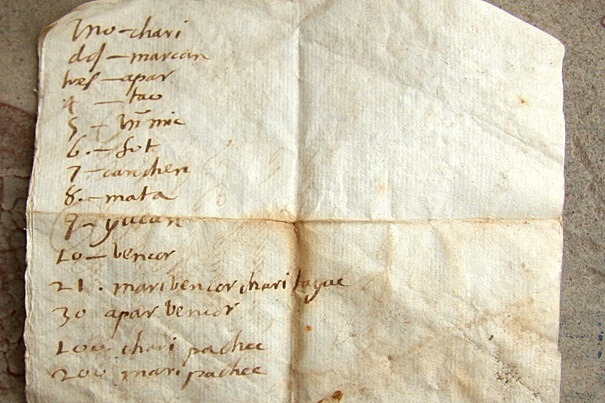 Uno - chari
dos - marcan
tres - apar
4 - tao
5 - ỹmic
6. - sut
7 - canchen
8. - mata
9 - yucan
10 - bencor
21. maribencor chari tayac
30 apar bencor
100. chari pachac
200 mari pachac